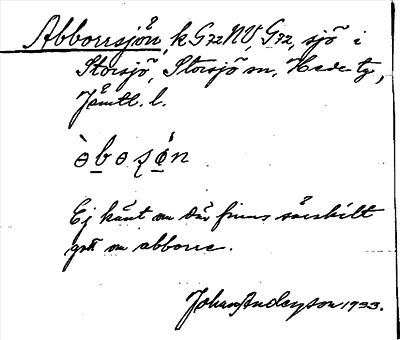 Abborrsjön, k G72NV, G72, sjö i
Storsjö, Storsjö sn, Hede tg,
Jämtl. l.
Ej känt om där finns särskilt
gott om abborre.
Johan Anderson 1933.